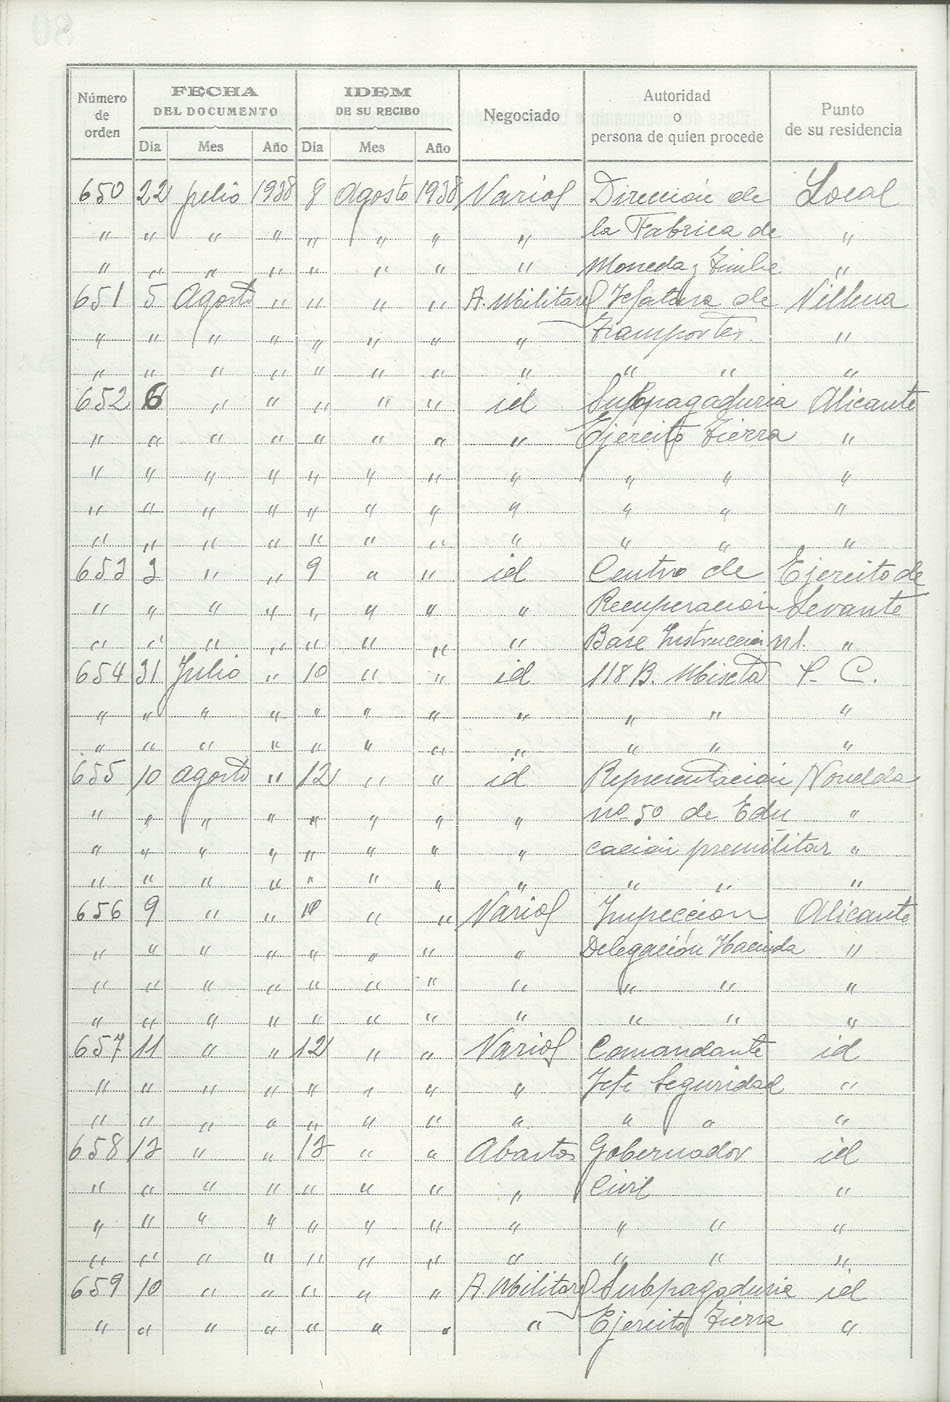 Número de orden | FECHA DEL DOCUMENTO | IDEM DE SU RECIBO | Negociado | Autoridad o persona de quien procede | Punto de su residencia
Día | Mes | Año | Día | Mes | Año
650 22 julio 1938 8 Agosto 1938 Varios Dirección de Local
" " " " " " " " la Fabrica de "
" " " " " " " " Moneda y Timbre "
651 5 Agosto " " " " A. Militares Jefatura de Villena
" " " " " " " " Transportes. "
" " " " " " " " " "
652 6 " " " " " id Subpagaduria Alicante
" " " " " " " " Ejercito Tierra "
" " " " " " " " " " "
" " " " " " " " " " "
" " " " " " " " " " "
653 3 " " 9 " " id Centro de Ejercito de
" " " " " " " " Recuperación Levante
" " " " " " " " Base Instruccion n1. "
654 31 Julio " 10 " " id 118 B. Mixta P. C.
" " " " " " " " " " "
" " " " " " " " " " "
655 10 Agosto " 12 " " id Representación Novelda
" " " " " " " " nº 50 de Edu "
" " " " " " " " cación premilitar "
" " " " " " " " " " "
656 9 " " 10 " " Varios Inspección Alicante
" " " " " " " " Delegación Hacienda "
" " " " " " " " " " "
" " " " " " " " " " "
657 11 " " 12 " " Varios Comandante id
" " " " " " " " Jefe Seguridad "
" " " " " " " " " " "
658 13 " " 13 " " Abastos Gobernador id
" " " " " " " " Civil "
" " " " " " " " " " "
" " " " " " " " " " "
659 10 " " " " " A. Militares Subpagaduria id
" " " " " " " " Ejercito Tierra "